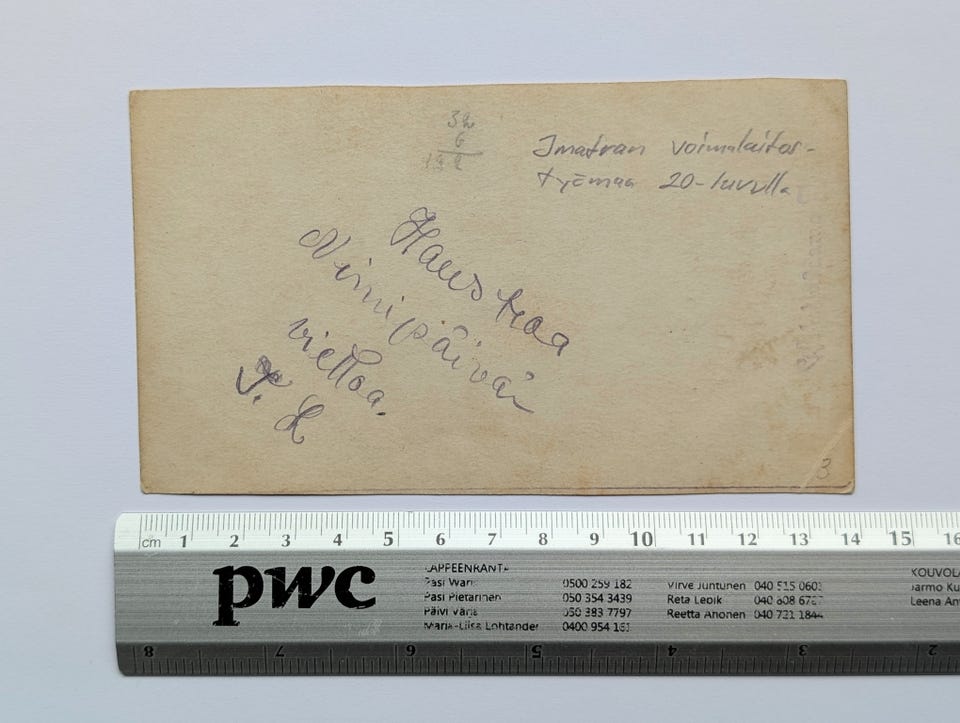 32
6
192
Imatran voimalaitos-
työmaa 20-luvulla
Hauskaa
Nimipäivän
viettoa.
T. L
3
cm 1 2 3 4 5 6 7 8 9 10 11 12 13 14 15 16
pwc
LAPPEENRANTA
Pasi Waris 0500 259 182
Pasi Pietarinen 050 354 3439
Päivi Värjä 050 383 7797
Marja-Liisa Lohtander 0400 954 161
Virve Juntunen 040 515 0603
Reta Lepik 040 808 6767
Reetta Ahonen 040 721 1844
KOUVOLA
Jarmo Ku
Leena An
8 7 6 5 4 3 2